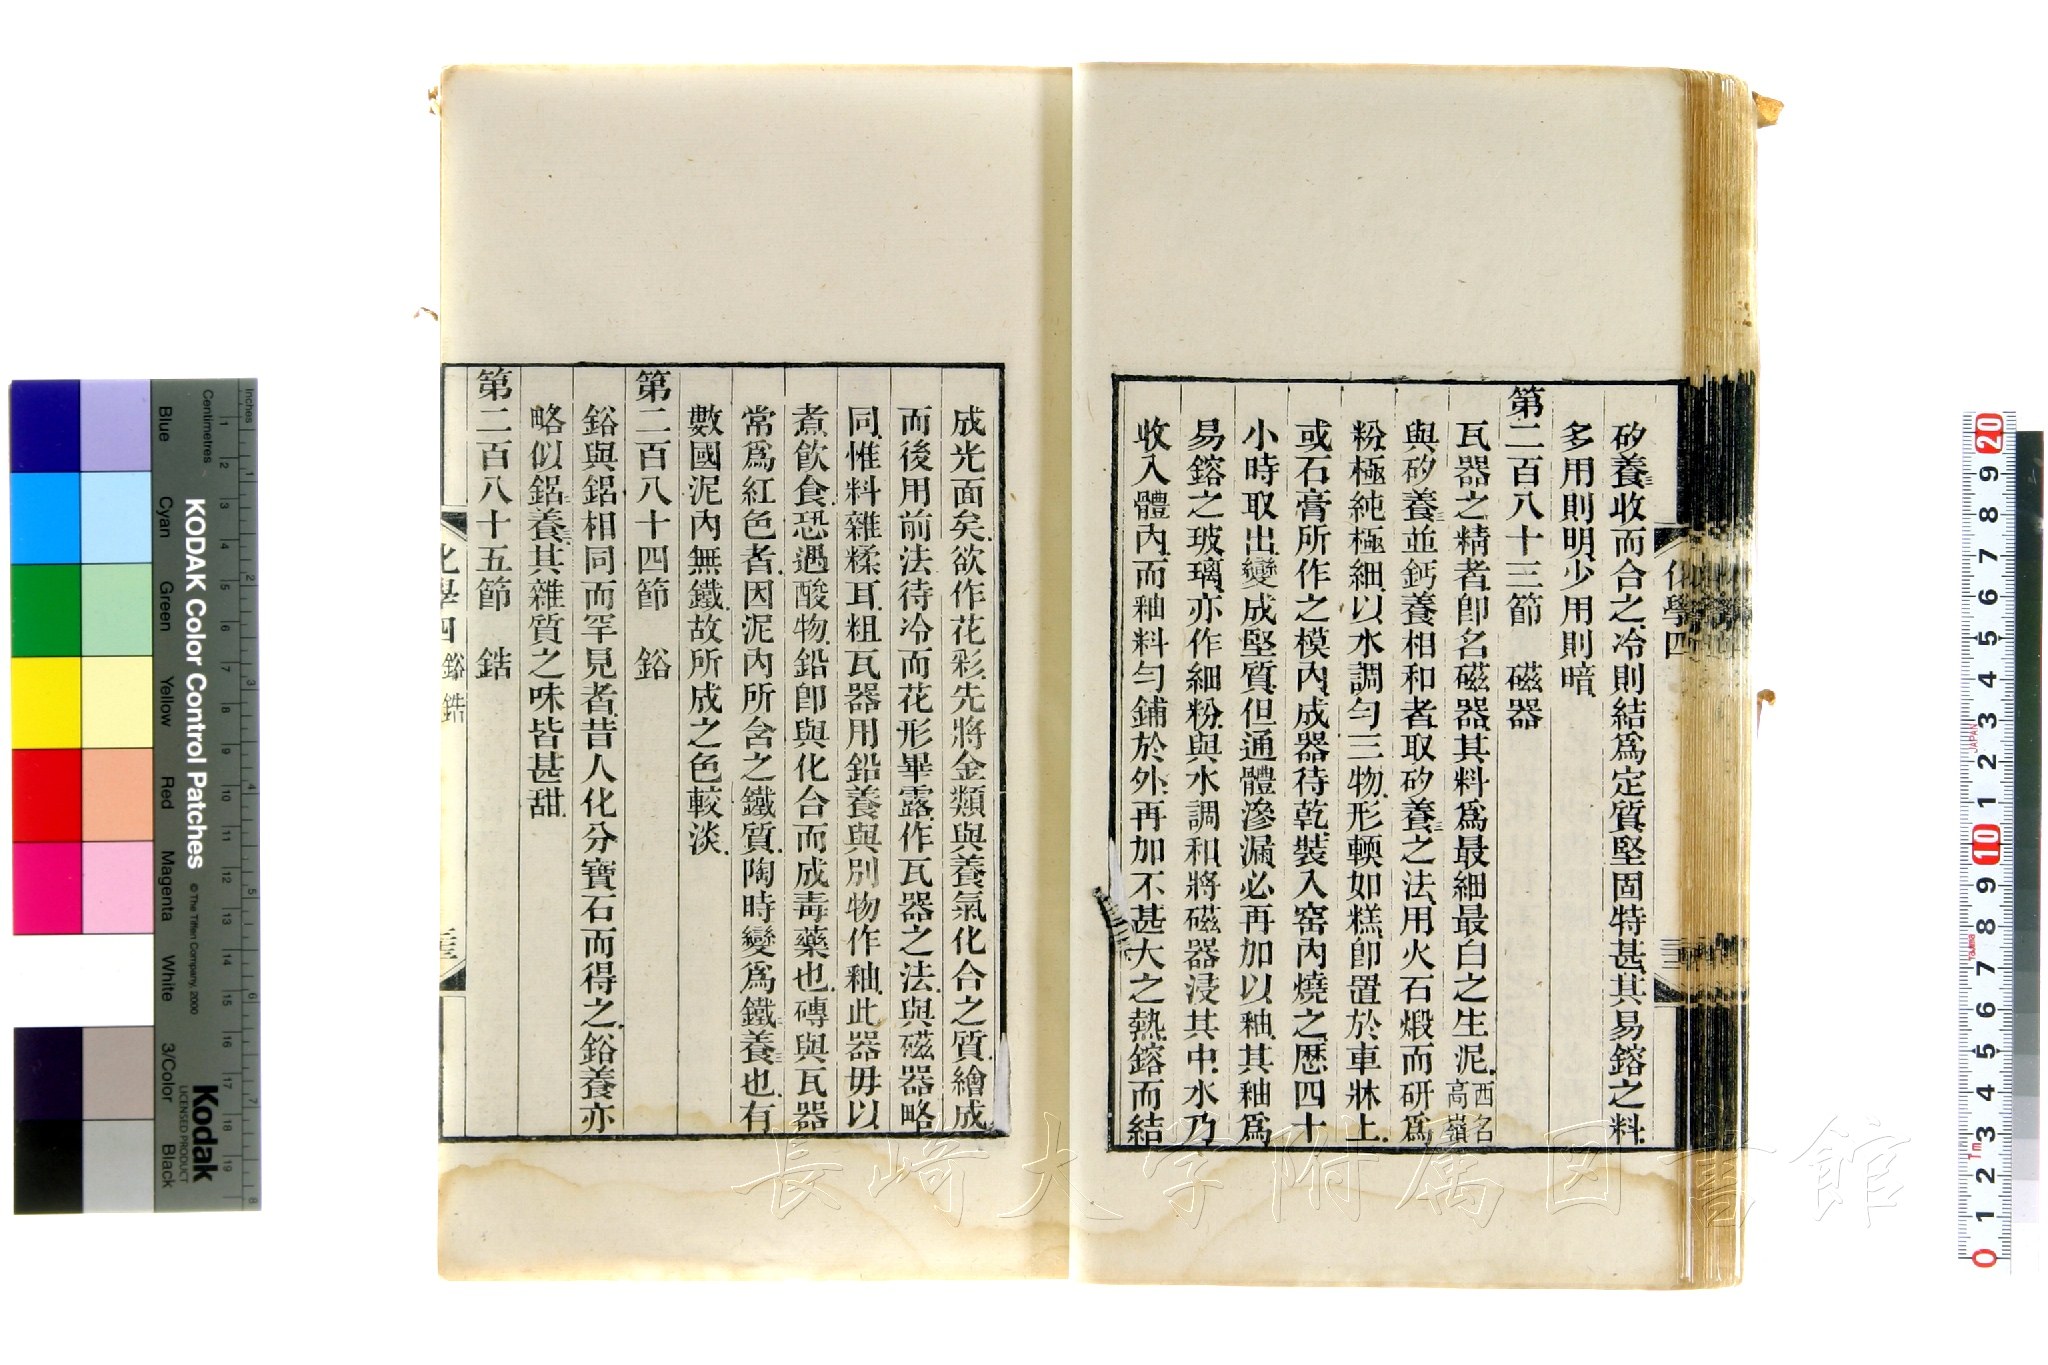 矽養三收而合之冷則結爲定質堅固特甚其易鎔之料
多用則明少用則暗
第二百八十三節　磁器
瓦器之精者卽名磁器其料爲最細最白之生泥西名高嶺
與矽養三並鈣養相和者取矽養三之法用火石煅而研爲
粉極純極細以水調勻三物形輭如糕卽置於車牀上
或石膏所作之模內成器待乾裝入窰內燒之歷四十
小時取出變成堅質但通體滲漏必再加以釉其釉爲
易鎔之玻璃亦作細粉與水調和將磁器浸其中水乃
收入體內而釉料勻鋪於外再加不甚大之熱鎔而結
化學四
成光面矣欲作花彩先將金類與養氣化合之質繪成
而後用前法待冷而花形畢露作瓦器之法與磁器略
同惟料雜糅耳粗瓦器用鉛養與別物作釉此器毋以
煮飲食恐遇酸物鉛卽與化合而成毒藥也磚與瓦器
常爲紅色者因泥內所含之鐵質陶時變爲鐵養也有
數國泥內無鐵故所成之色較淡
第二百八十四節　鋊
鋊與鋁相同而罕見者昔人化分寶石而得之鋊養亦
略似鋁養其雜質之味皆甚甜
第二百八十五節　鋯
化學四　鋊　鋯
KODAK Color Control Patches
© The Tiffen Company, 2000
Kodak
LICENSED PRODUCT
Inches
Centimetres
Blue
Cyan
Green
Yellow
Red
Magenta
White
3/Color
Black
長崎大学附属図書館
JAPAN